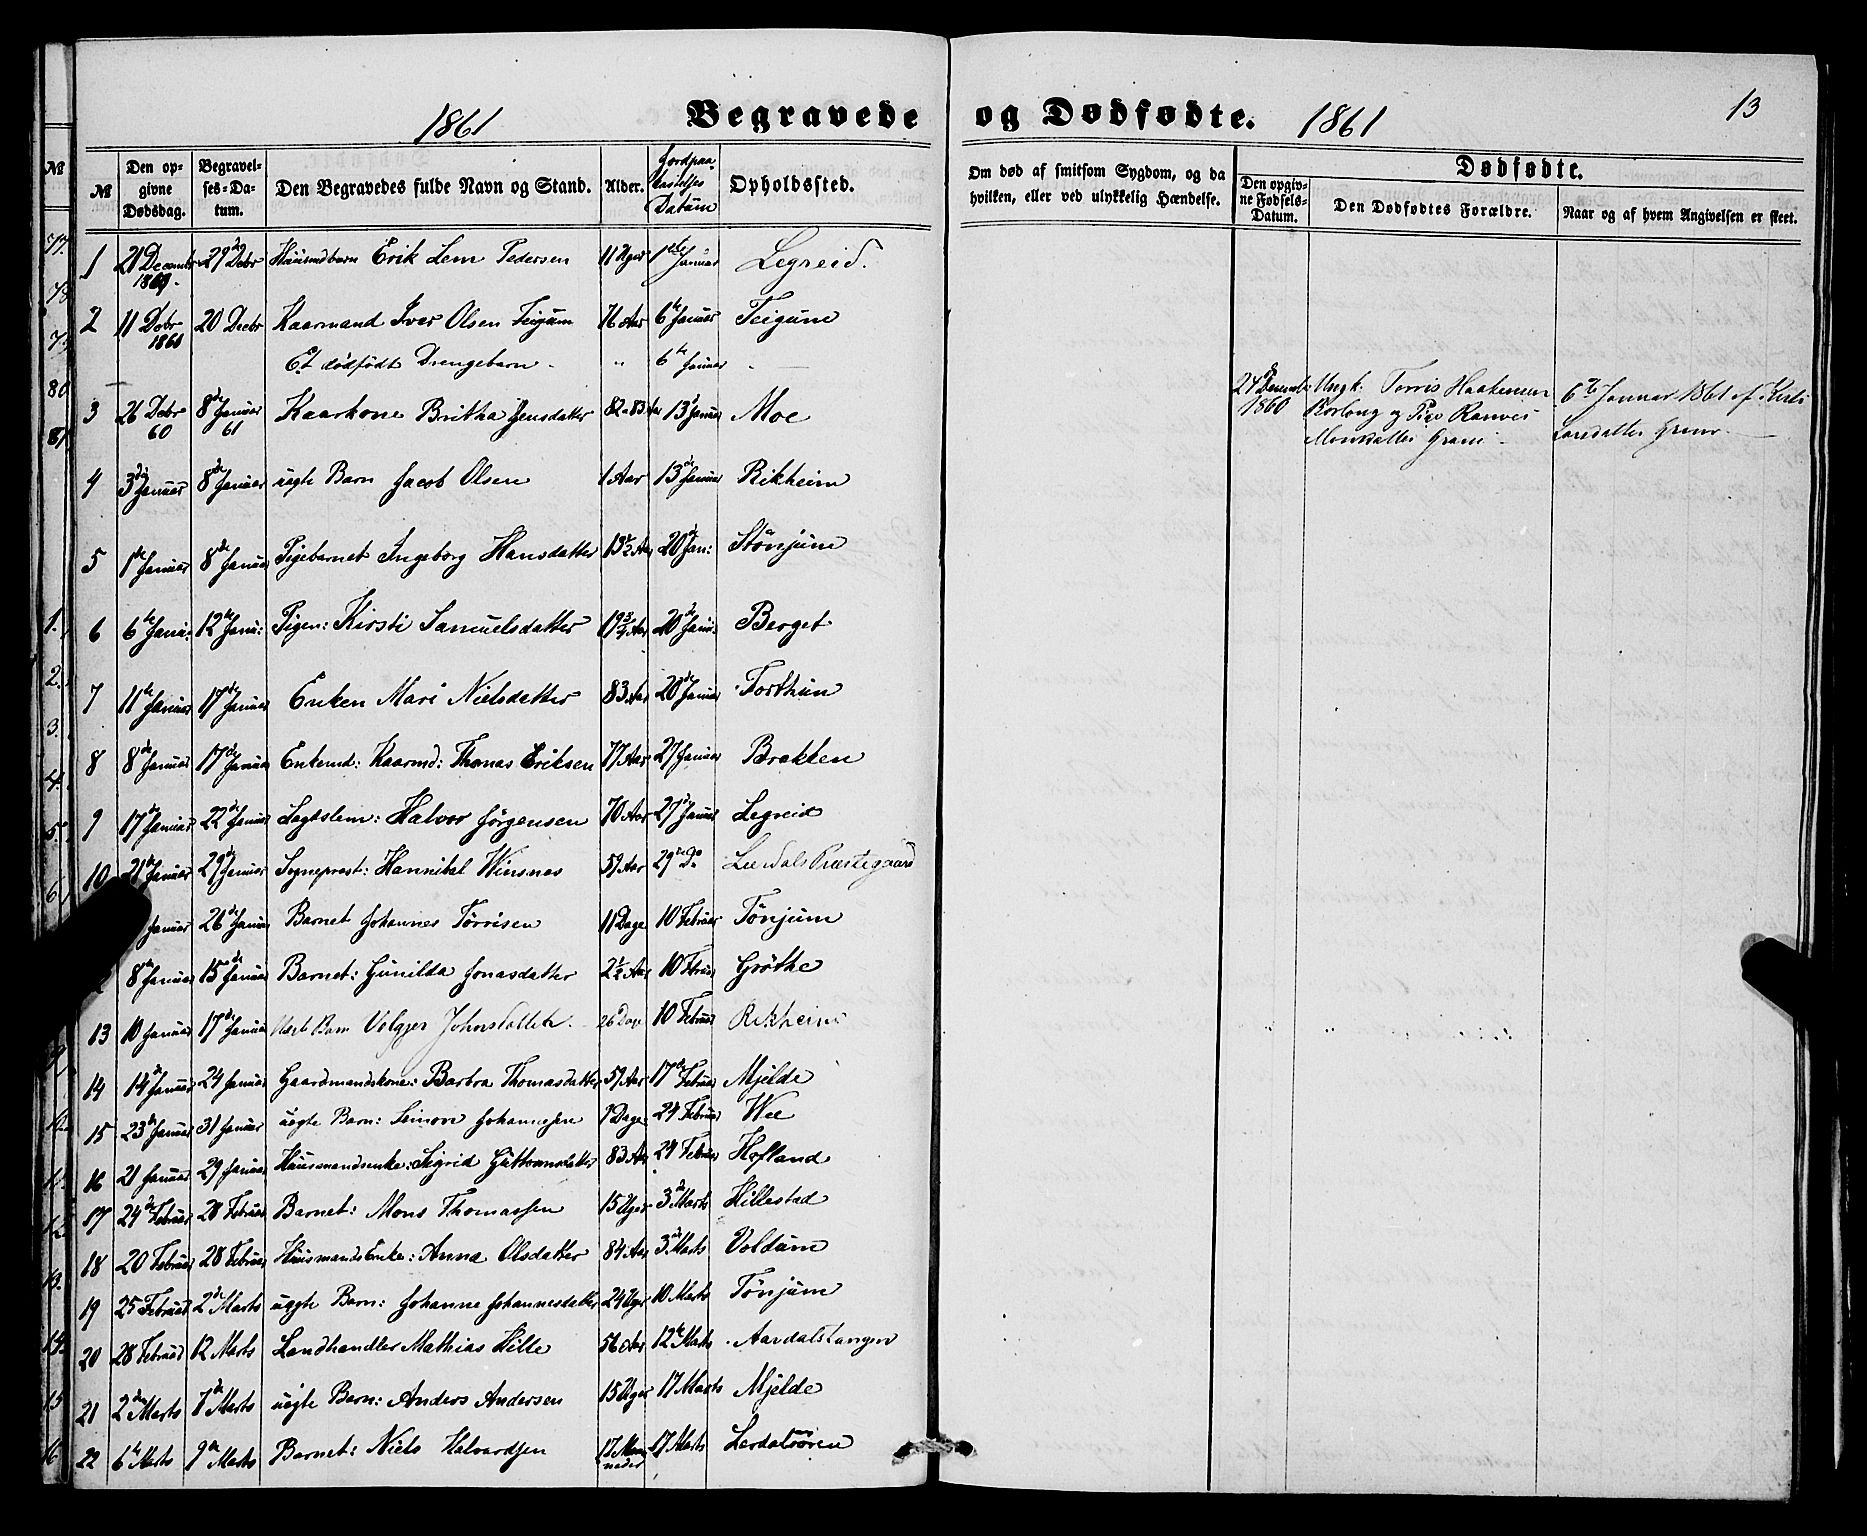 1861 Begravede og Dødfødte. 1861 13
№ Den opgivne Dødsdag. Begravelses-Datum. Den Begravedes fulde Navn og Stand. Alder. Jordpaakastelses Datum Opholdssted.
Om død af smitsom Sygdom, og da hvilken, eller ved ulykkelig Hændelse.
Dødfødte.
Den opgivne Fødsels-Datum. Den Dødfødtes Forældre. Naar og af hvem Angivelsen er skeet.
1 21 Decembr 29 Debr Huusmdbarn Erik Lem Pedersen 11 Uger 1ste Januar Legreid.
2 11 Debr 1860 20 Decbr Kaarmand Iver Olsen Teigum 76 Aar 6te Januar Teigum
Et dødfødt Drengebarn - " 6te Januar -
24de Decemb: 1860 Ungk: Torris Haakensen 6te Januar 1861 af Kirsti
3 26 Debr 60 8de Januar 61 Kaarkone Britha Jensdatter 82 a 83 Aar 13de Januar Moe
Monsdatter Grøni - Larsdatter
4 3die Januar 8de Januar uægte Barn Jacob Olsen 1 Aar 13de Januar Rikheim
5 1ste Januar 8de Januar Pigebarnet Ingeborg Hansdatter 13½ Aar 20de Jan: Stönjum
6 6te Janu: 12te Janu: Pigen: Kirsti Samuelsdatter 19¾ Aar 20de Janu: Berget
7 11te Januar 17de Januar Enken Mari Nielsdatter 83 Aar 20de Januar Forthun
8 8de Januar 17de Januar Enkemd: Kaarmd: Thomas Eriksen 77 Aar 27 Januar Brekken
9 17de Januar 22de Januar Lægdslem: Halvor Jørgensen 70 Aar 27de Januar Legreid
10 21de Januar 29de Januar Sogneprest: Hannibal Winsnes 59 Aar 29de Do Leirdals Præstegaard
Januar 26de Januar Barnet Johannes Törrisen 11 Dage 10 Februar Tönjum
8de Januar 15de Januar Barnet: Gunilda Jonasdatter 2½ Aar 10 Februar Gröthe
13 10 Januar 17de Januar Uægte Barn Johnsdatter 26 Dage 10 Februar Rikheim
14 14de Januar 24 Januar Gaardmandskone: Barbra Thomasdatter 59 Aar 17de Februar Mjelde
15 23de Januar 31 Januar uægte Barn: Simon Johannesen Dage 24 Februar Wee
16 21 Januar 29 Januar Huusmandsenke: Sigrid Guttormsdatter 83 Aar 24 Februar Hofland
17 24de Februar 28 Februar Barnet: Mons Thomassen 15 Uger 3de Marts Hillestad
18 20 Februar 28 Februar Huusmands Enke: Anna Olsdatter 84 Aar 3de Marts Voldum
19 25 Februar 2de Marts uægte Barn: Johanne Johannesdatter 24 Uger 10 Marts Tönjum
20 28 Februar 12 Marts Landhandler Mathias Hilde 56 Aar 12te Marts Aardalstangen
21 2den Marts 7de Marts uægte Barn: Anders Andersen 15 Uger 17 Marts Mjelde
22 6te Marts 9de Marts Barnet: Niels Halvardsen 17 Maaneder 17 Marts Lerdalsören